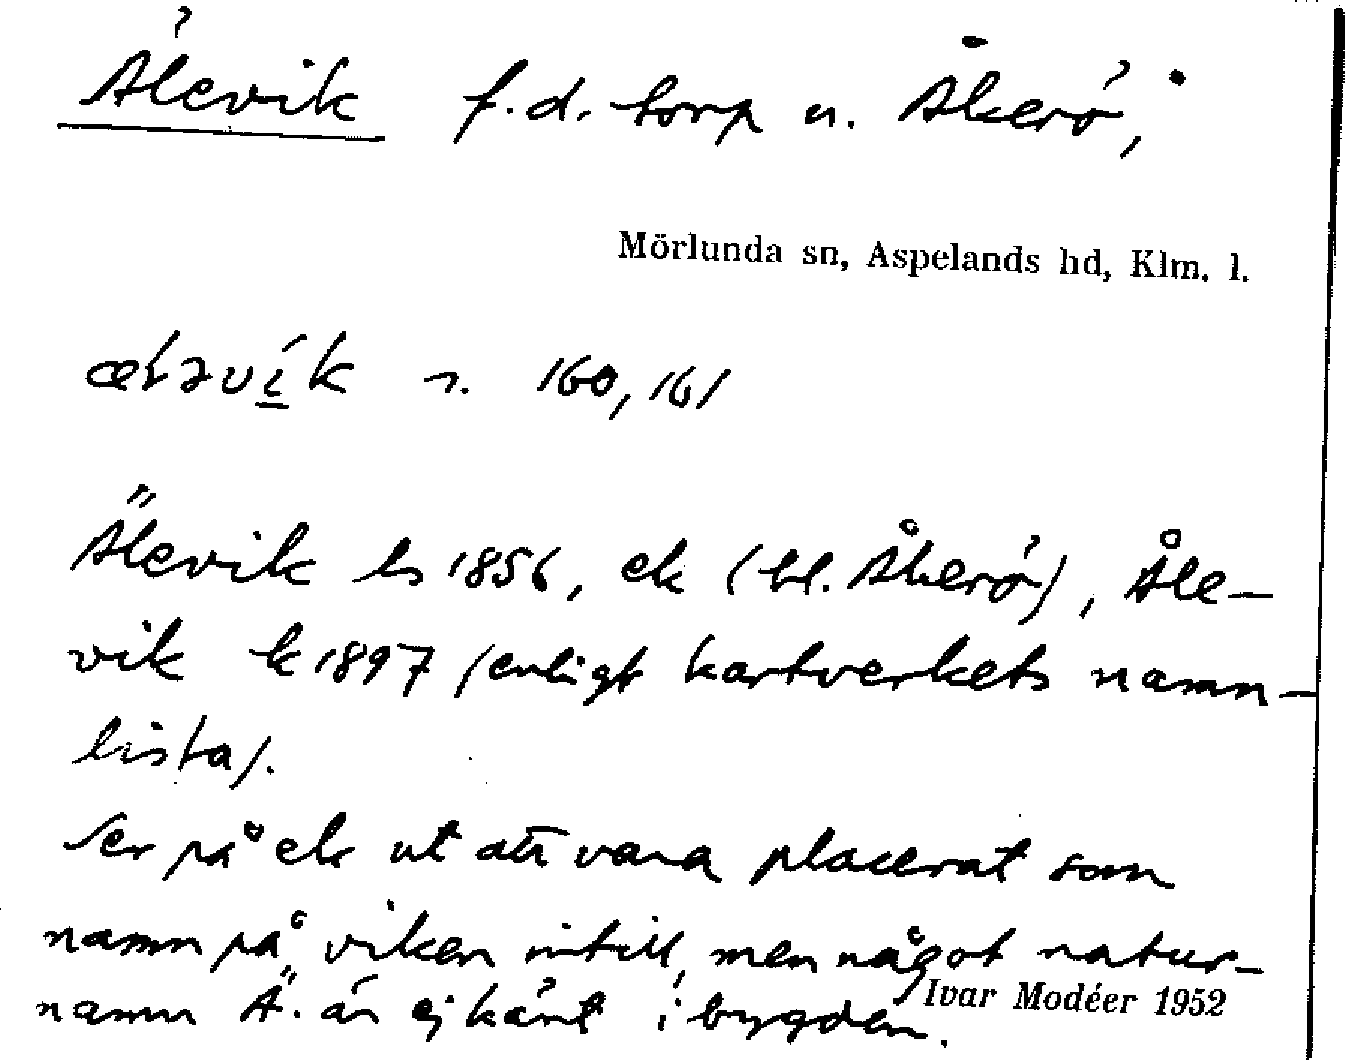 Älevik f.d. torp u. Åkerö,
Mörlunda sn, Aspelands hd, Klm. l.
æləví̲k n. 160, 161
Älevik ls 1856, ek (bl. Åkerö), Åle-
vik k 1897 (enligt kartverkets namn-
lista).
Ser på ek ut att vara placerat som
namn på viken intill, men något natur-
namn Ä. är ej känt i bygden.
Ivar Modéer 1952